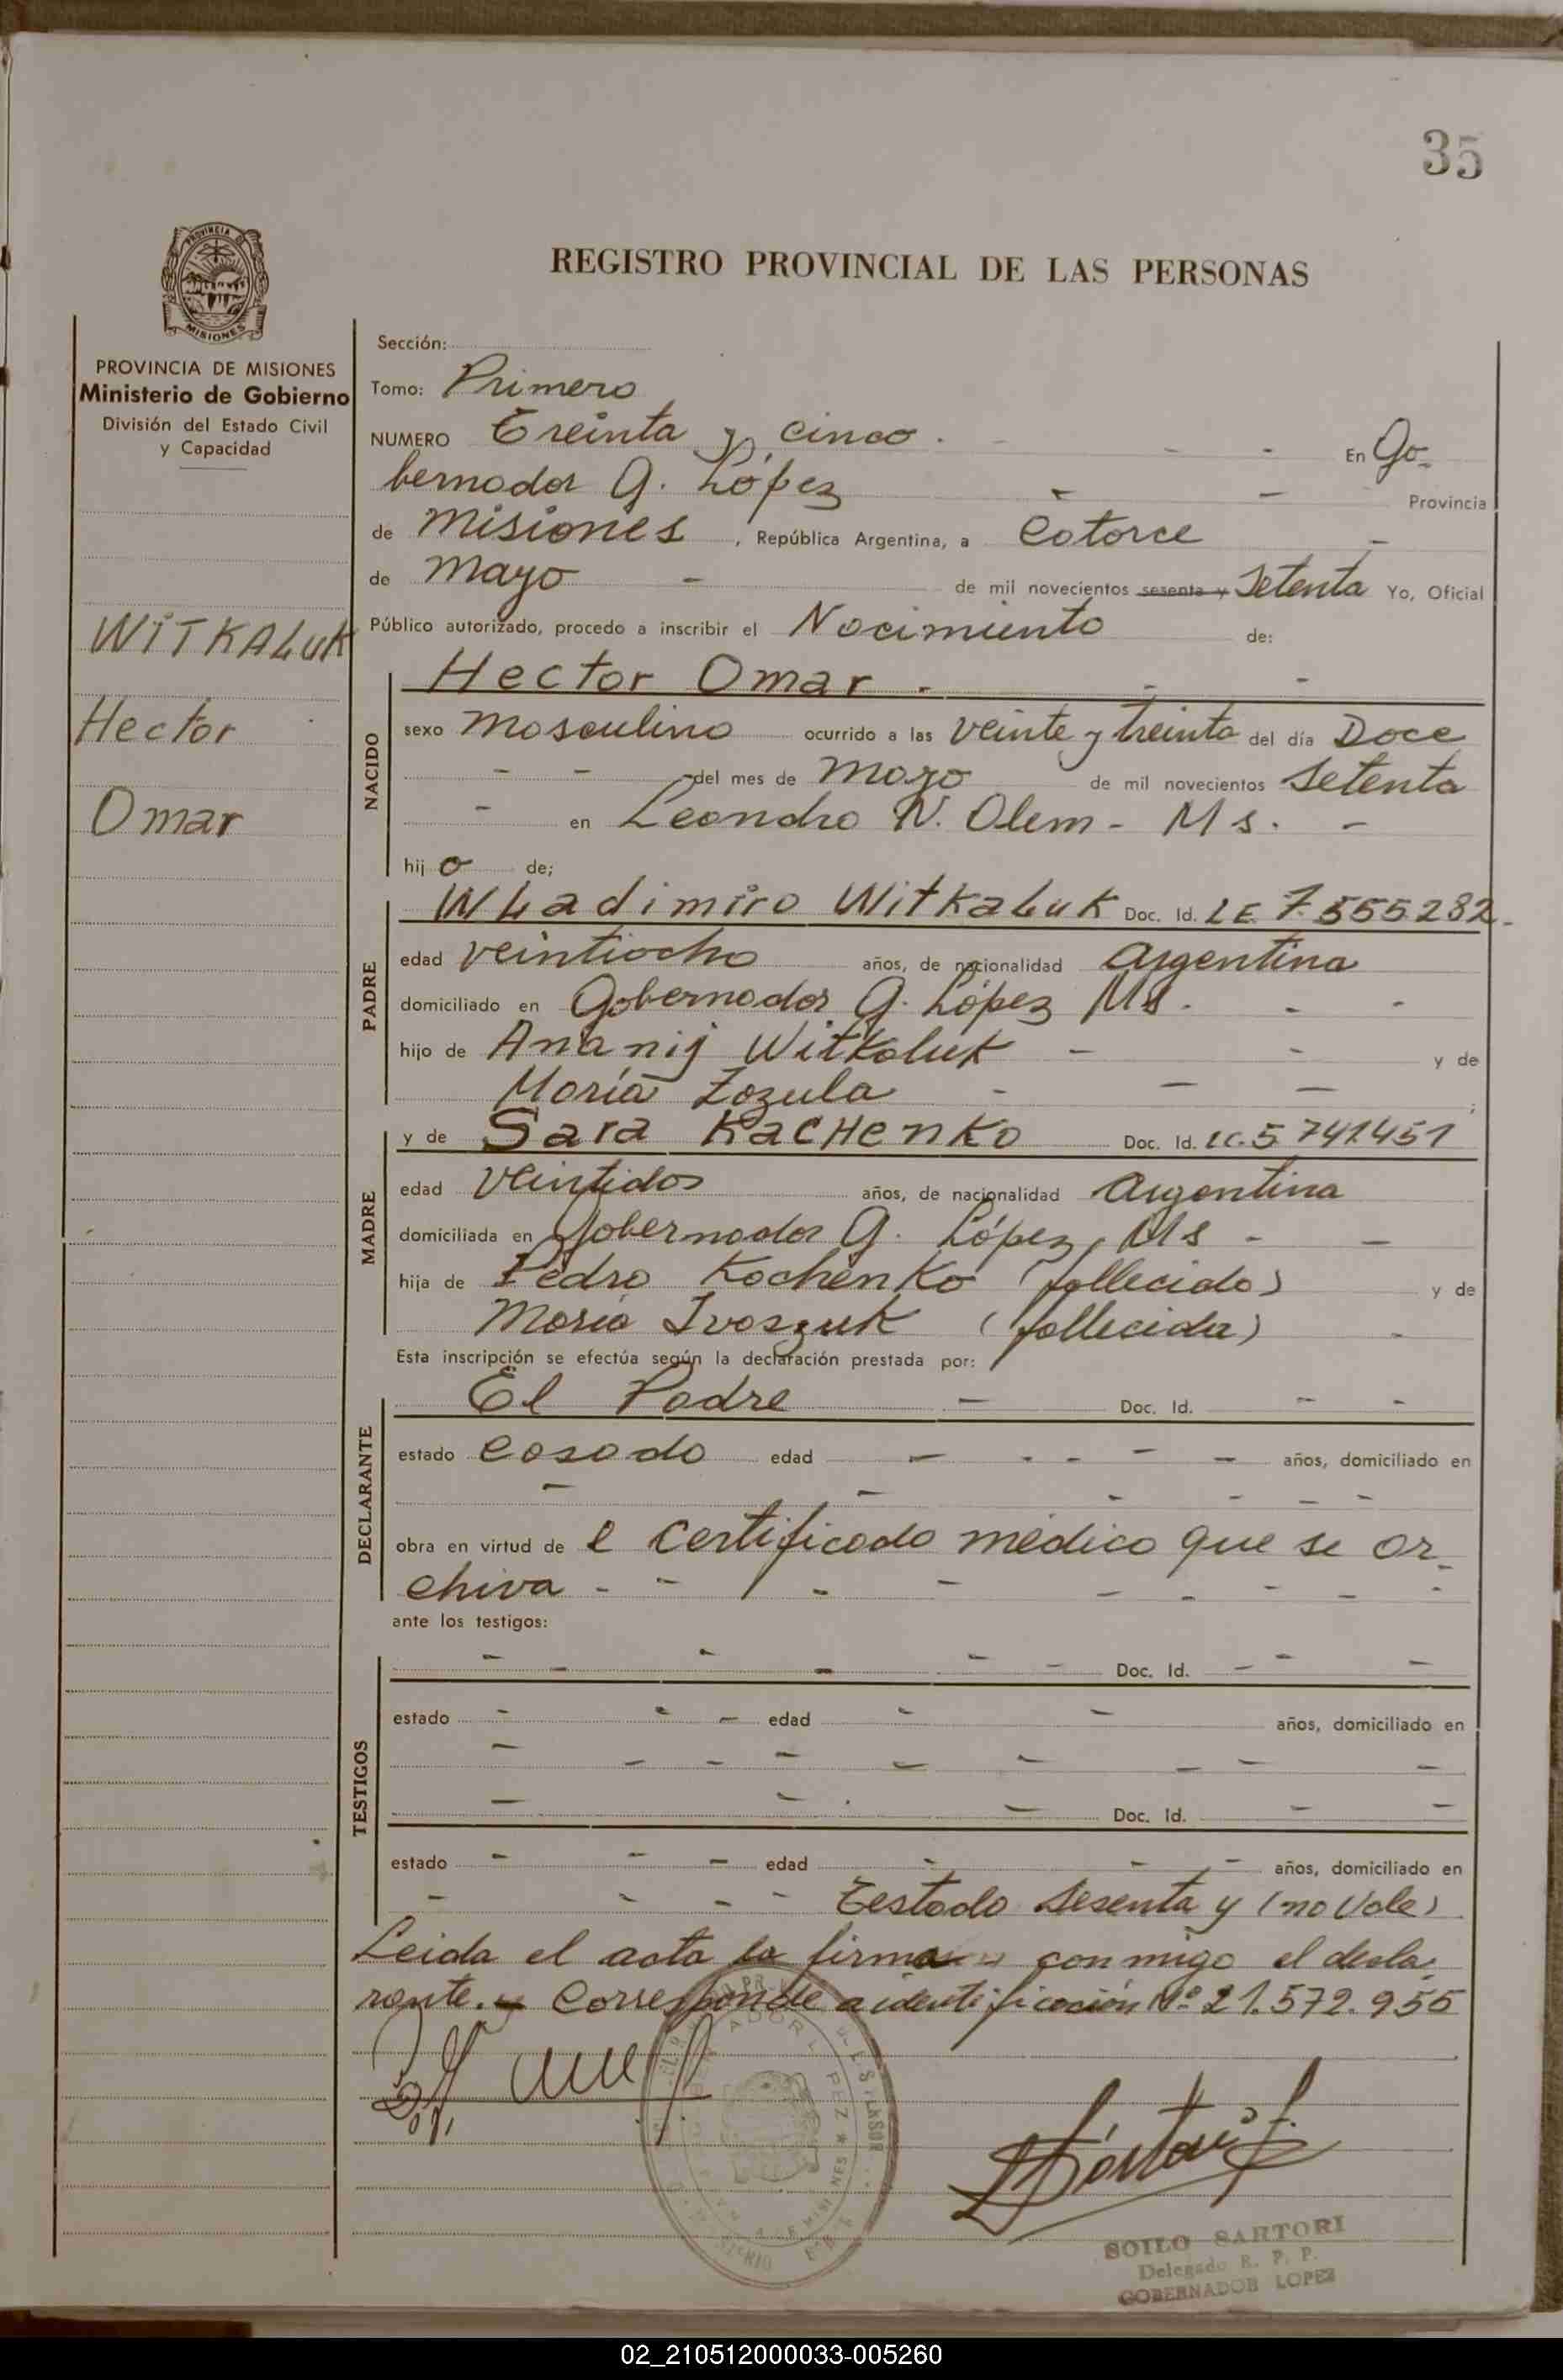 35
REGISTRO PROVINCIAL DE LAS PERSONAS
PROVINCIA
MISIONES
PROVINCIA DE MISIONES
Ministerio de Gobierno
División del Estado Civil
y Capacidad
WITKALUK
Hector
Omar
Sección:
Tomo: Primero
NUMERO Treinta y cinco. - - - En Go-
bernador G. López - - Provincia
de Misiones, República Argentina, a Catorce -
de Mayo - de mil novecientos sesenta y Setenta Yo, Oficial
Público autorizado, procedo a inscribir el Nacimiento de:
Hector Omar. - -
NACIDO
sexo Masculino ocurrido a las veinte y treinta del día Doce
- - - del mes de Mayo de mil novecientos Setenta
- en Leandro N. Alem - Ms. -
hijo de;
PADRE
Wladimiro Witkaluk Doc. Id. LE. 7.555.282.
edad veintiocho años, de nacionalidad Argentina
domiciliado en Gobernador G. López Ms. - -
hijo de Ananij Witkaluk - - y de
María Zozula - - - ;
MADRE
y de Sara Kachenko Doc. Id. LC. 5 741.451
edad veintidos años, de nacionalidad Argentina
domiciliada en Gobernador G. López, Ms - -
hija de Pedro Kachenko (fallecido) y de
María Ivaszuk (fallecida) -
Esta inscripción se efectúa según la declaración prestada por:
DECLARANTE
El Padre - Doc. Id. - -
estado Casado edad - - - - - años, domiciliado en
- - - - - -
obra en virtud de l certificado médico que se ar-
chiva - - - - - - - - -
ante los testigos:
TESTIGOS
- - - - - - Doc. Id. - - -
estado - - - edad - - años, domiciliado en
- - - - - - - - -
- - - Doc. Id. - -
estado - - - edad - - - años, domiciliado en
- - - - Testado sesenta y (no Vale)
Leida el acta la firma conmigo el decla-
rante. y Corresponde a identificación Nº 21.572.955
SOILO SARTORI
Delegado R. P. P.
GOBERNADOR LOPEZ
02_210512000033-005260